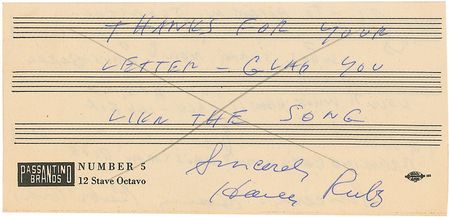 THANKS FOR YOUR
LETTER – GLAD YOU
LIKN THE SONG
Sincerely
Harry Ruby
PASSANTINO
BRANDS
NUMBER 5
12 Stave Octavo